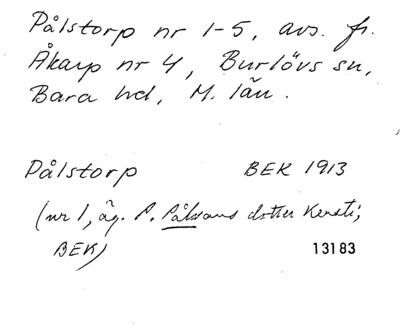 Pålstorp nr 1-5, avs. fr.
Åkarp nr 4, Burlövs sn,
Bara hd, M. län.
Pålstorp BEK 1913
(nr 1, äg. P. Pålssons dotter Kersti;
BEK)
13183